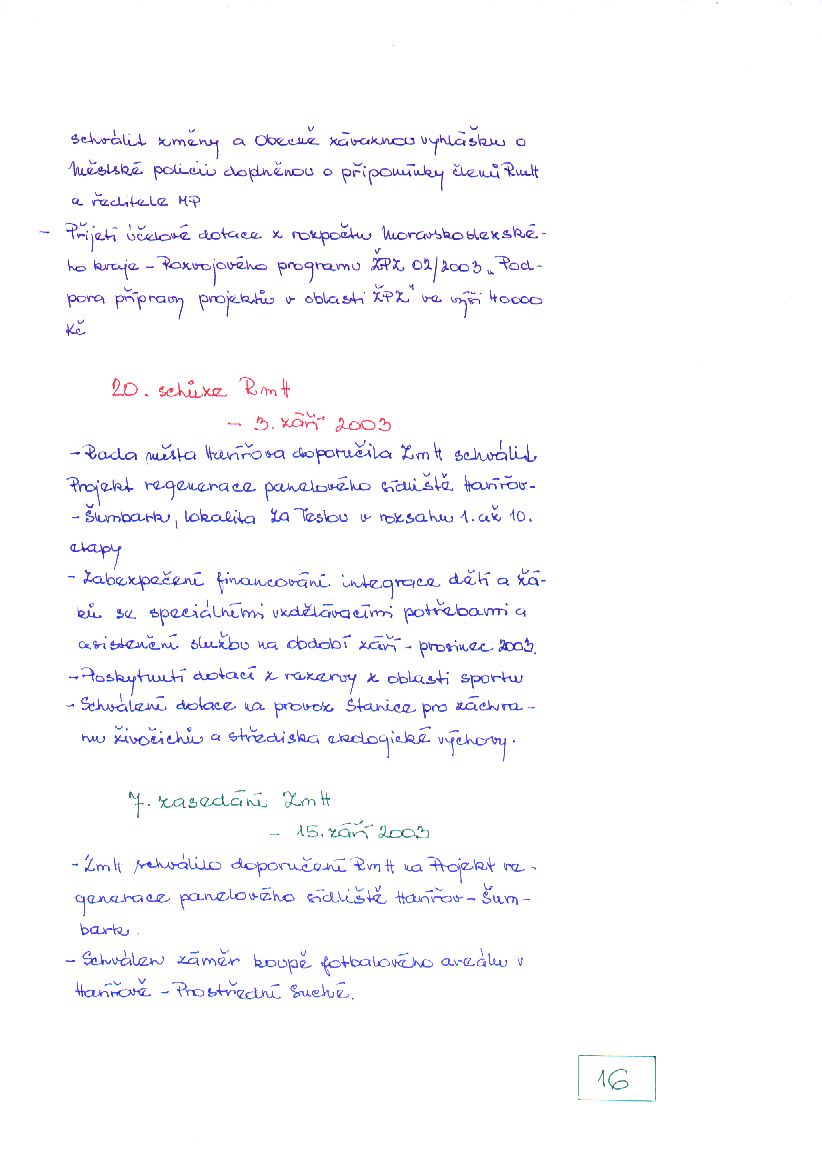 schválit změny a Obecně závaznou vyhlášku o
Městské policii doplněnou o připomínky členů RmH
a ředitele MP
- Přijetí účelové dotace z rozpočtu Moravskoslezské-
ho kraje - Rozvojového programu ŽPZ 02/2003 „Pod-
pora přípravy projektů v oblasti ŽPZ" ve výši 40000
Kč
20. schůze RmH
- 3. září 2003
- Rada města Havířova doporučila ZmH schválit
Projekt regenerace panelového sídliště Havířov-
- Šumbark, lokalita Za Teslou v rozsahu 1. až 10.
etapy
- Zabezpečení financování integrace dětí a žá-
ků se speciálními vzdělávacími potřebami a
asistenční službu na období září - prosinec 2003.
- Poskytnutí dotací z rezervy z oblasti sportu
- Schválení dotace na provoz Stanice pro záchra-
nu živočichů a střediska ekologické výchovy.
7. zasedání ZmH
- 15. září 2003
- ZmH schválilo doporučení RmH na Projekt re-
generace panelového sídliště Havířov - Šum-
bark.
- Schválen záměr koupě fotbalového areálu v
Havířově - Prostřední Suché.
16